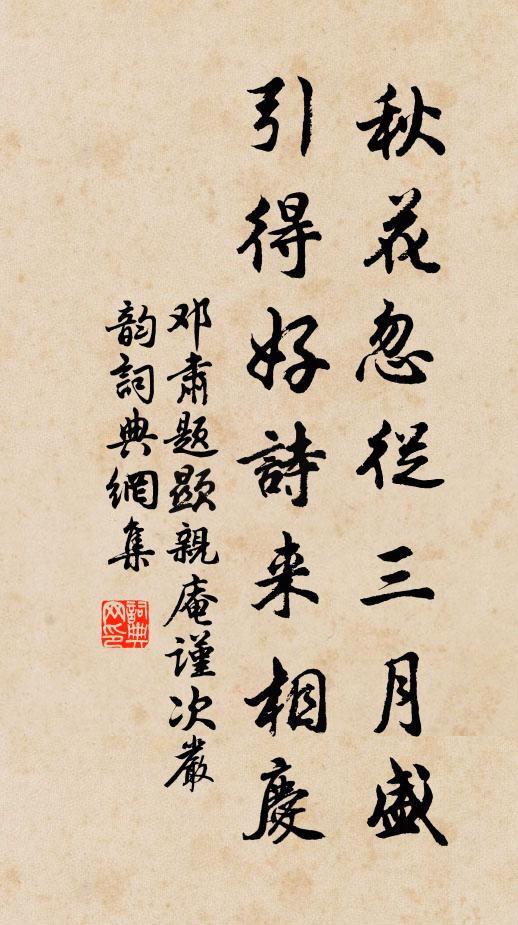 秋花忽從三月盛
引得好詩来相慶
邓肅题顯親庵谨次嚴
韵詞典網集
詞典网印